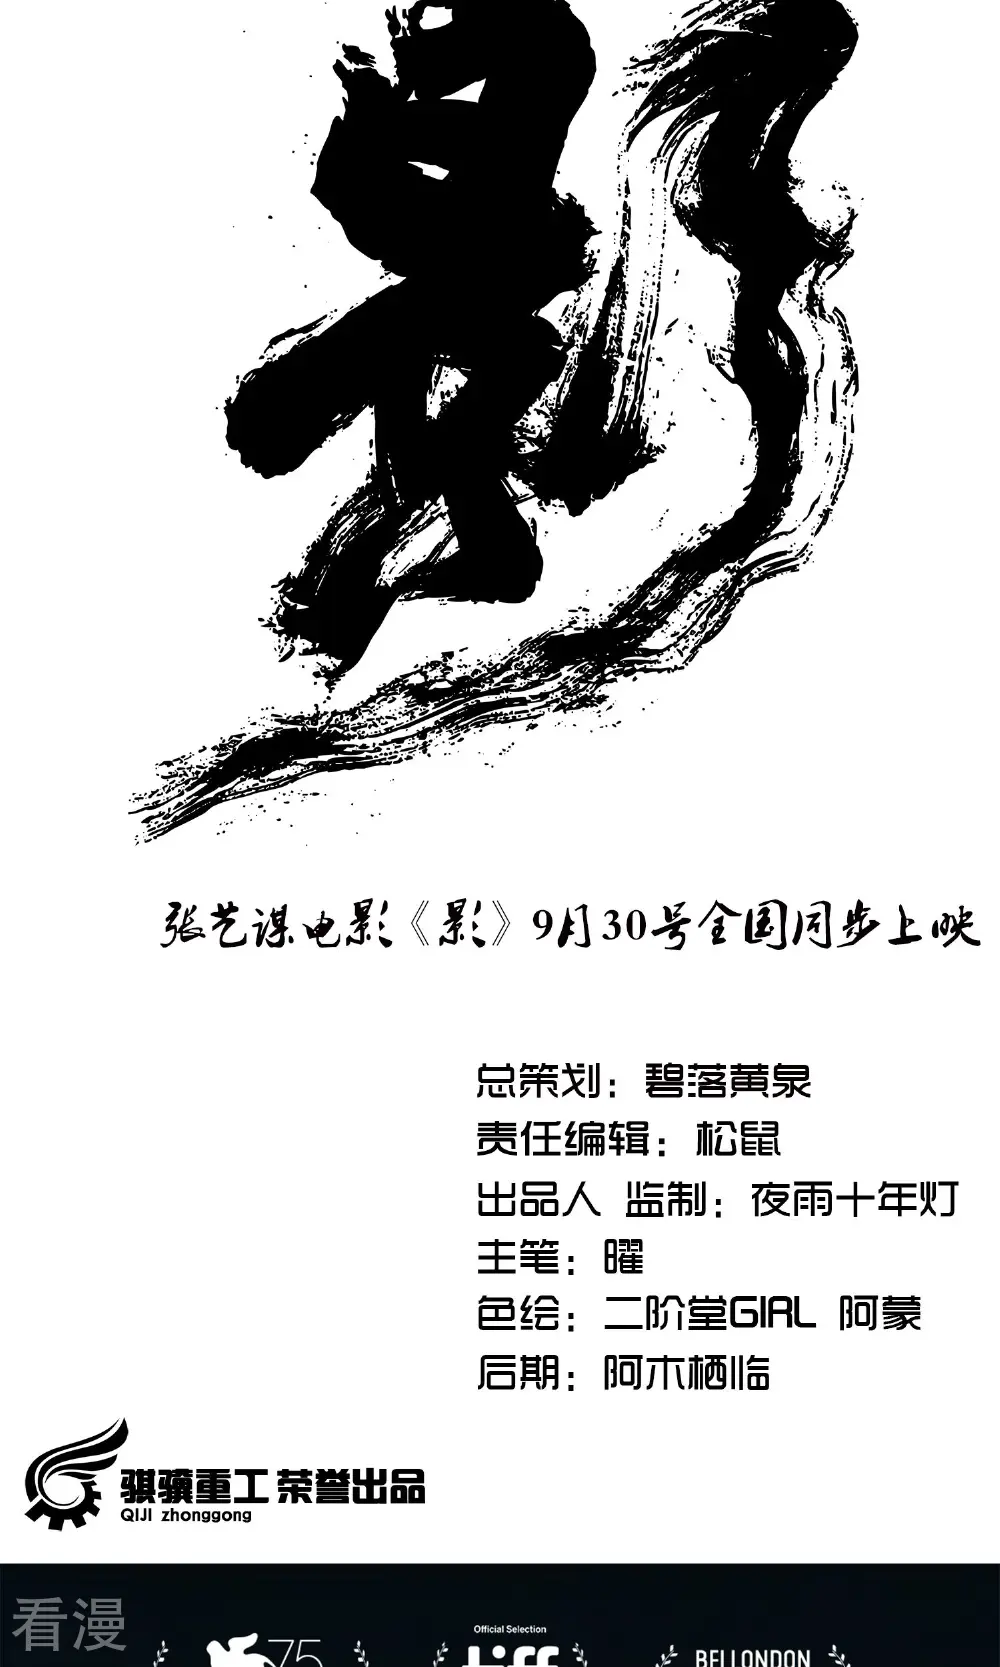 影
张艺谋电影《影》9月30号全国同步上映
总策划：碧落黄泉
责任编辑：松鼠
出品人 监制：夜雨十年灯
主笔：曜
色绘：二阶堂GIRL 阿蒙
后期：阿木栖临
骐骥重工 荣誉出品
QIJI zhonggong
看漫
75
Official Selection
tiff
BFI LONDON